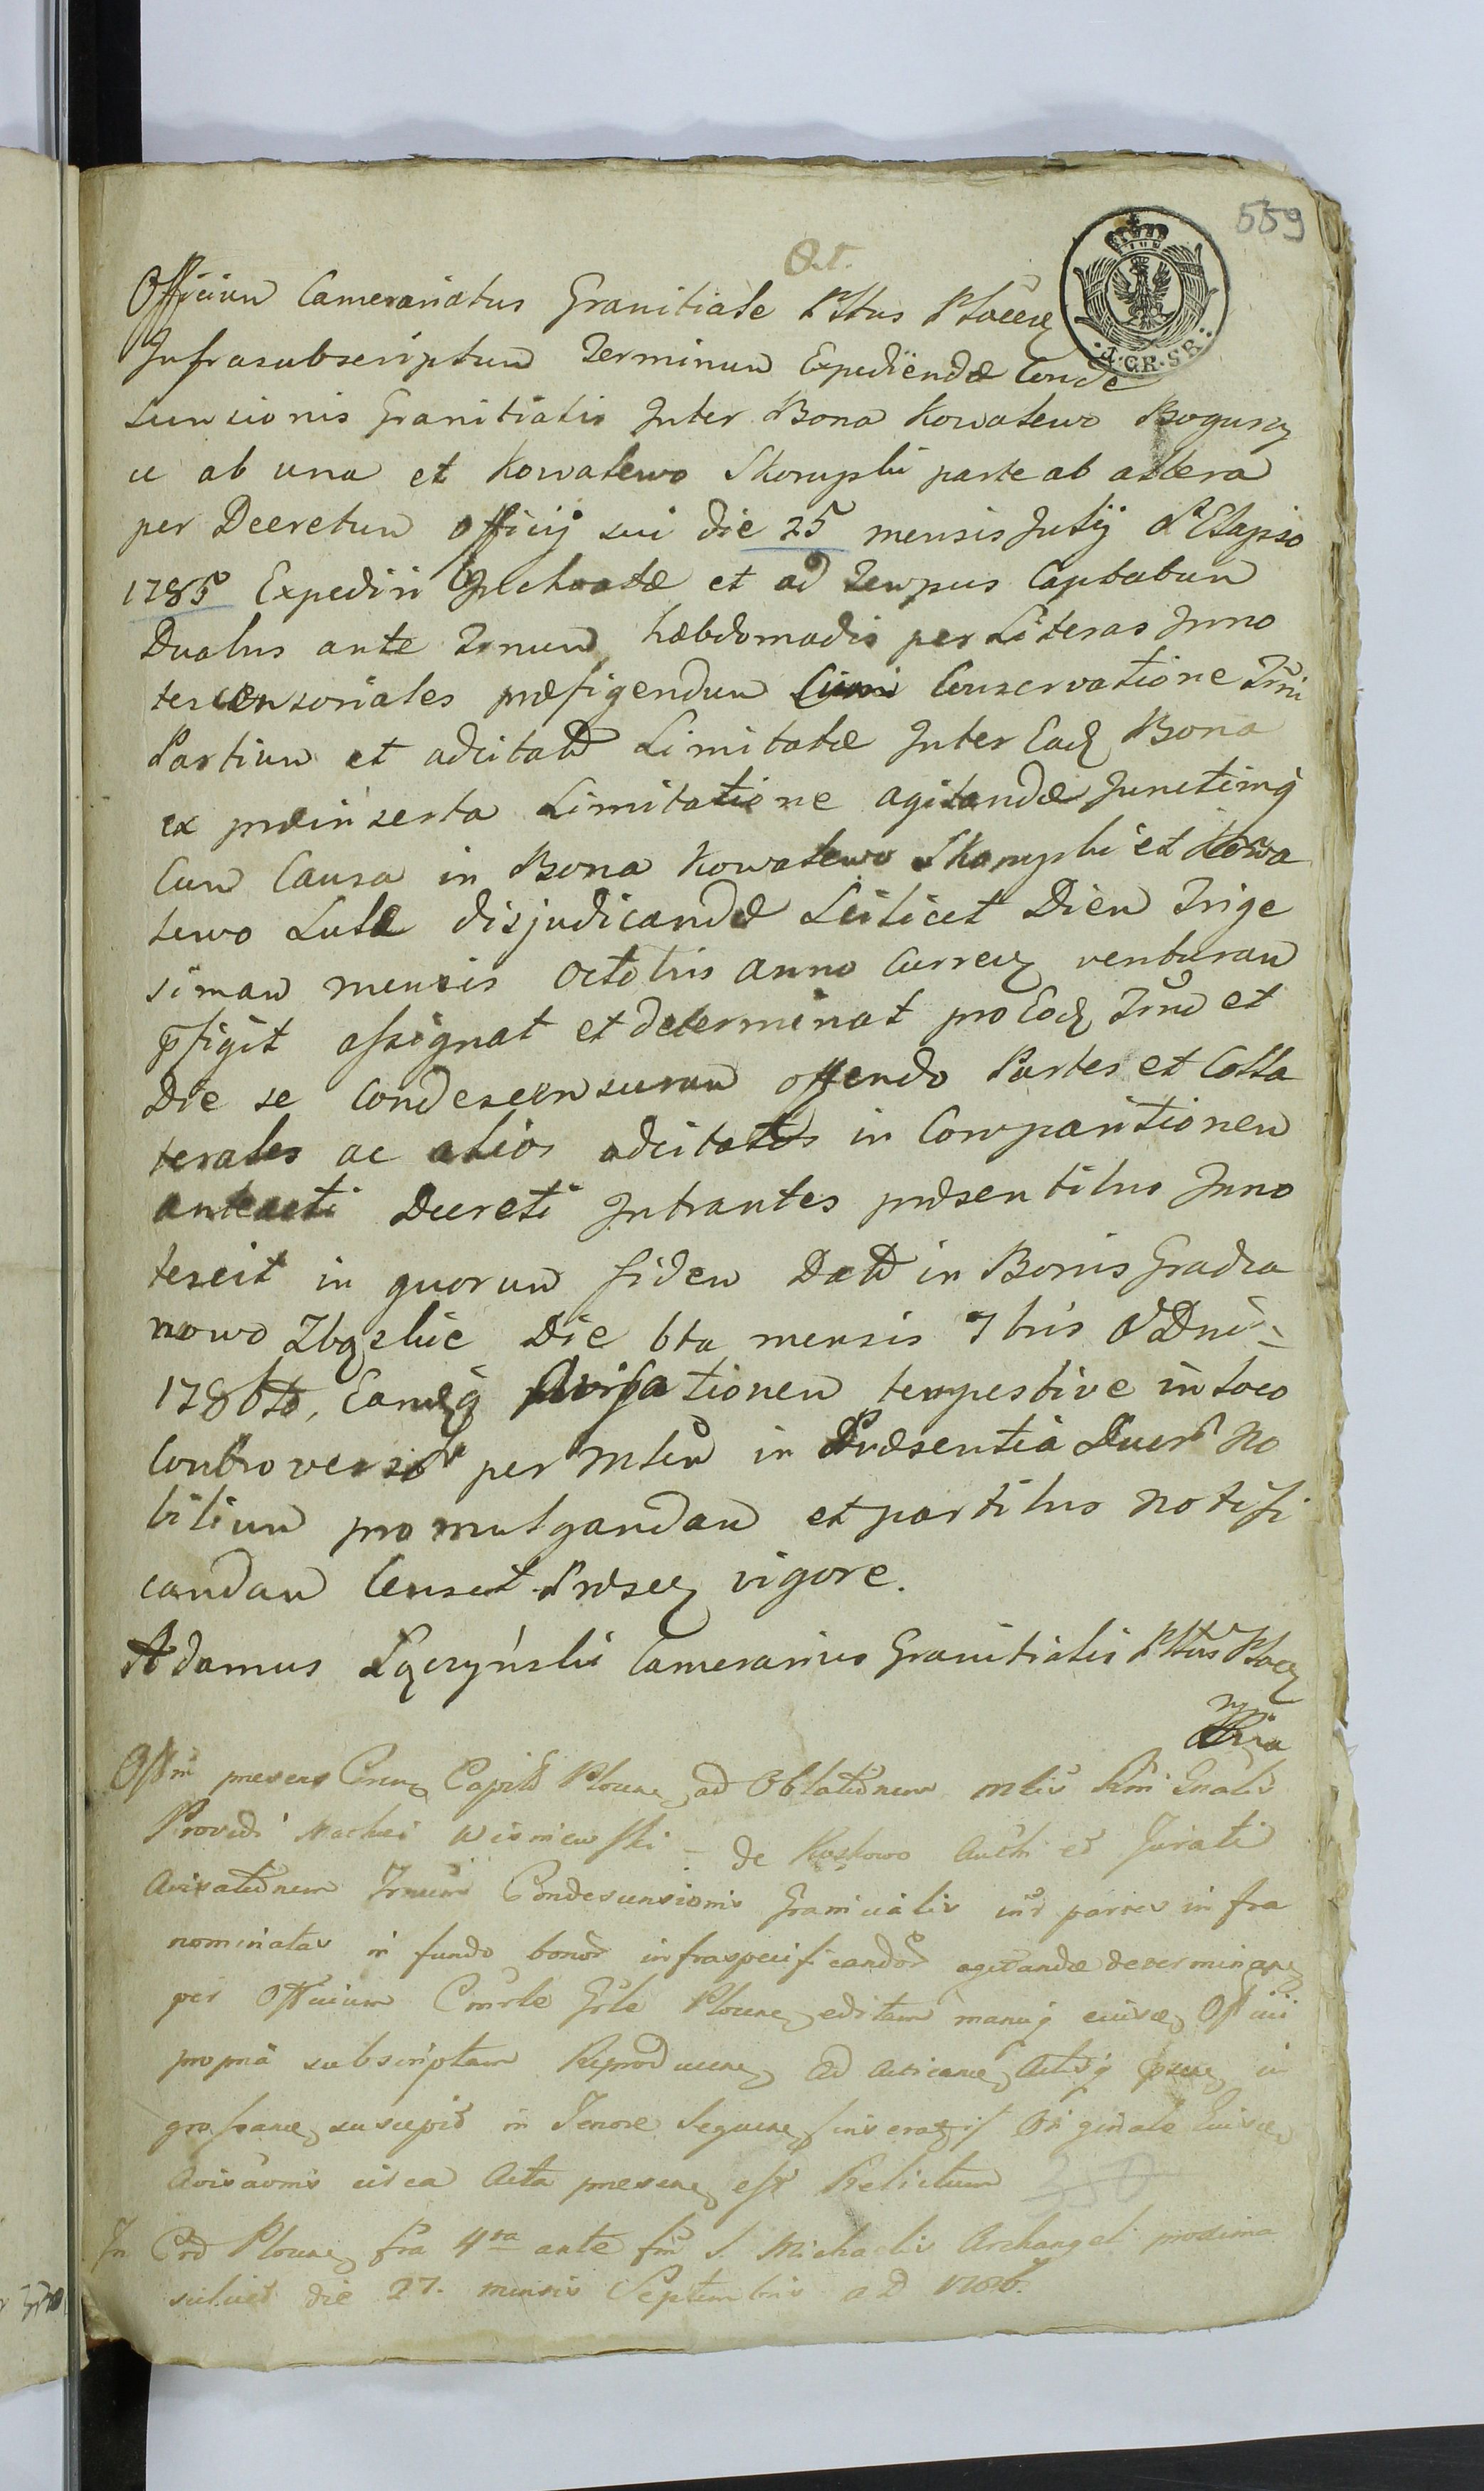 559
Act.
Officium Camerariatus Granitiale Plttus Plocen
Infrasubscriptum Terminum Expediendæ Conde
scensionis Granitialis Inter Bona Kowalewo Boguszy
ce ab una et Kowalewo Skorupki parte ab altera
per Decretum Officij sui die 25 mensis Julij aō Elapso
1785 Expediri Inchoatæ et ad Tempus Captatum
Duabus ante Trnum hæbdomadis per Literas Inno
tescensoriales præfigendum Cum Conservatione Trni
Partium et adcitatū Limitatæ Inter Eadē Bona
ex præinserta Limitatione agitandæ Junctimq
Cum Causa in Bona Kowalewo Skorupki et Kowa
lewo Lutæ disjudicandæ Scilicet Diem Trige
simam mensis Octobris anno Curren venturam
p̄figit assignat et determinat pro Eodē Trno et
Die se Condescensuram offendo Partes et Colla
terales ac alios adcitatos in Comparitionem
anteacti Decreti Intrantes præsentibus Inno
tescit in quorum fidem Datū in Bonis Gradza
nowo Zbęskie Die 6ta mensis 7bris aō Dni
1786to, Eamdēq Avisationem tempestive in loco
Controversō per Mlem in Præsentia Duorū No
bilium promulgandam et partibus notifi
candam Censet Præsen vigore.
Adamus Łączyński Camerarius Granitialis Plttus Plocen
mppria
Offm presens Castren Capitle Plocen, ad Oblationem Mlis Rni Gnalis
Providi Mathei Wisniewski - de Kuskowo Auth et Jurati
Avisationem Trnum Condescensionis Granicialis intr partes infra
nominatas in fundo bonor infraspecificandor agitandæ determinan
per Officium Cmrle Grle Plocen, editam manuq ejusd, Officii
propria subscriptam Reproducen, ad acticand, Actisq psen, in
grossand, suscepit in Tenore Sequen, inserat, Originale Ejusd,
Avisaonis circa Acta presen, est Relictum
In Crd Plocen, fra 4ta ante fm S. Michaelis Archangeli proxima
scilicet die 27. mensis Septembris a D 1786.
A.GR.SR.